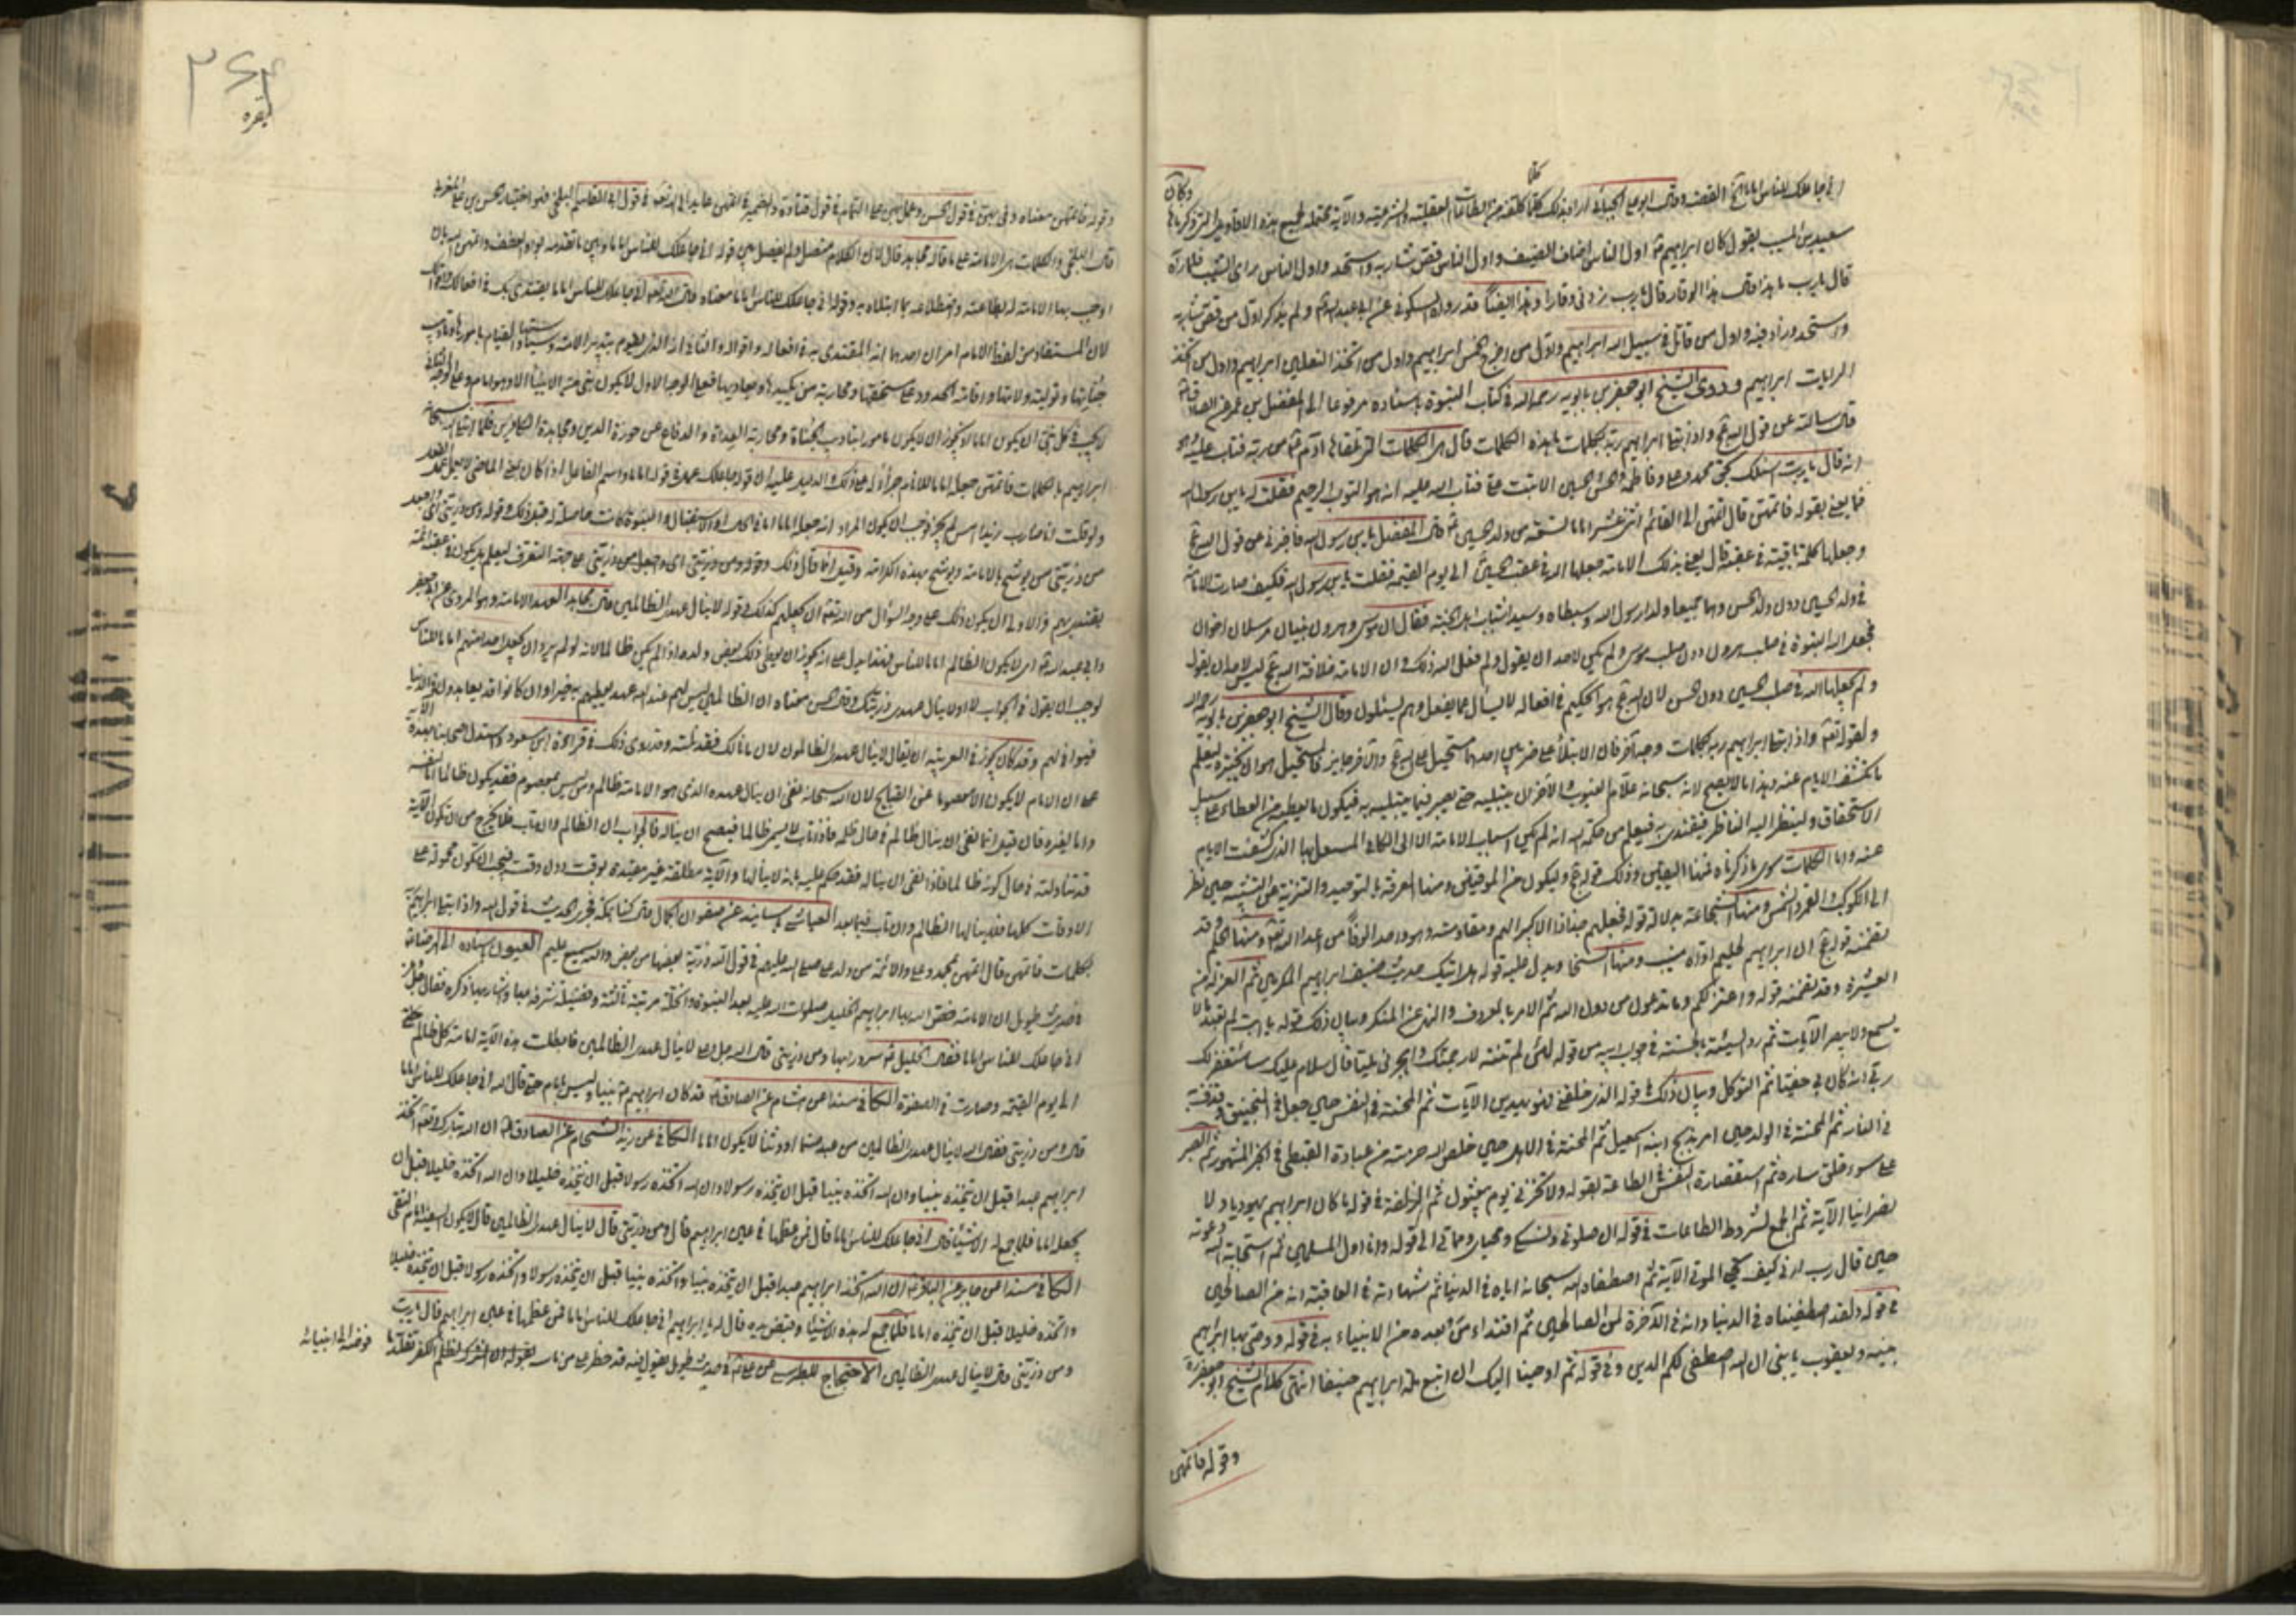 كلما
انى جاعلك للناس اماما الى آخر القصة وقال ابو على الجبائى اراد بذلك كلما كلفه من الطاعات العقلية والشرعية والآية محتملة لجميع هذه الاقاويل التى ذكرناها وكان
سعيد بن المسيب يقول كان ابراهيم ع اول الناس اضاف الضيف واول الناس قص شاربه واستحد واول الناس راى الشيب فلما رآه
قال يا رب ما هذا قال هذا الوقار قال يا رب زدنى وقارا وهذا ايضا قد رواه السكونى عن ابى عبد الله ع ولم يذكر اول من قص شاربه
واستحد وزاد فيه واول من قاتل فى سبيل الله ابراهيم واول من اخرج الخمس ابراهيم واول من اتخذ النعلين ابراهيم واول من اتخذ
الرايات ابراهيم وروى الشيخ ابو جعفر بن بابويه رحمه الله فى كتاب النبوة باسناده مرفوعا الى المفضل بن عمر عن الصادق ع
قال سالته عن قول الله عج واذ ابتلى ابراهيم ربه بكلمات ما هذه الكلمات قال هى الكلمات التى تلقاها آدم ع من ربه فتاب عليه وهو
انه قال يا رب اسئلك بحق محمد وعلى وفاطمة والحسن والحسين الا تبت على فتاب الله عليه انه هو التواب الرحيم فقلت له يا بن رسول الله
فما يعنى بقوله فاتمهن قال اتمهن الى القائم اثنى عشر اماما تسعة من ولد الحسين ع قال المفضل يا بن رسول الله فاخبرنى عن قول الله عج
وجعلها كلمة باقية فى عقبه قال يعنى بذلك الامامة جعلها الله فى عقب الحسين الى يوم القيمة فقلت يا بن رسول الله فكيف صارت الامامة
فى ولد الحسين دون ولد الحسن وهما جميعا ولدا رسول الله وسبطاه وسيدا شباب اهل الجنة فقال ان موسى وهرون نبيان مرسلان اخوان
فجعل الله النبوة فى صلب هرون دون صلب موسى ولم يكن لاحد ان يقول لم فعل الله ذلك وان الامامة خلافة الله عج ليس لاحد ان يقول
لم جعلها الله فى صلب الحسين دون الحسن لان الله عج هو الحكيم فى افعاله لا يسأل عما يفعل وهم يسئلون وقال الشيخ ابو جعفر بن بابويه رحمه الله
ولقوله تعالى واذ ابتلى ابراهيم ربه بكلمات وجه آخر فان الابتلاء على ضربين احدهما مستحيل على الله عج والآخر جايز فالمستحيل هو ان يختبره ليعلم
ما تكشف الايام عنه وهذا ما لا يصح لانه سبحانه علام الغيوب والآخر ان يبتليه حتى يصبر فيما يبتليه به فيكون ما يعطيه من العطاء على سبيل
الاستحقاق ولينظر اليه الناظر فيقتدى به فيعلم من حكمة الله انه لم يكن اسباب الامامة الا الى الكافى المستقل بها الذى كشفت الايام
عنه واما الكلمات سوى ما ذكرناه فمنها اليقين وذلك قوله عج وليكون من الموقنين ومنها المعرفة بالتوحيد والتنزيه عن التشبيه حين نظر
الى الكوكب والقمر والشمس ومنها الشجاعة بدلالة قوله فجعلهم جذاذا الا كبيرا لهم ومقاومته وهو واحد الوفا من اعداء الله تعالى ومنها الحلم وقد
تضمنه قوله عج ان ابراهيم لحليم اواه منيب ومنها السخا ويدل عليه قوله هل اتيك حديث ضيف ابراهيم المكرمين ثم العزلة عن
العشيرة وقد تضمنه قوله واعتزلكم وما تدعون من دون الله ثم الامر بالمعروف والنهى عن المنكر وبيان ذلك قوله يا ابت لم تعبد ما لا
يسمع ولا يبصر الآيات ثم رد السيئة بالحسنة فى جواب ابيه من قوله لئن لم تنته لارجمنك واهجرنى مليا قال سلام عليك ساستغفر لك
ربى انه كان بى حفيا ثم التوكل وبيان ذلك فى قوله الذى خلقنى فهو يهدين الآيات ثم المحنة فى النفس حين جعل فى المنجنيق وقذف به
فى النار ثم المحنة فى الولد حين امر بذبح ابنه اسمعيل ثم المحنة فى الاهل حين خلص الله حرمته من عبادة القبطى فى الخبر المشهور ثم الصبر
على سوء خلق ساره ثم استقصاره النفس فى الطاعة بقوله ولا تخزنى يوم يبعثون ثم الزلفة فى قوله ما كان ابراهيم يهوديا ولا
نصرانيا الآية ثم الجمع لشروط الطاعات فى قوله ان صلوتى ونسكى ومحياى ومماتى الى قوله وانا اول المسلمين ثم استجابة الله دعوته
حين قال رب ارنى كيف تحيى الموتى الآية ثم اصطفاه الله سبحانه اياه فى الدنيا ثم شهادته فى العاقبة انه من الصالحين
فى قوله ولقد اصطفيناه فى الدنيا وانه فى الآخرة لمن الصالحين ثم اقتداء من بعده من الانبياء به فى قوله ووصى بها ابراهيم
بنيه ويعقوب يا بنى ان الله اصطفى لكم الدين وفى قوله ثم اوحينا اليك ان اتبع ملة ابراهيم حنيفا انتهى كلام الشيخ ابو جعفر ره
وقوله فاتمهن
٢٦٤
بقره
وقوله فاتمهن معناه وفى بهن فى قول الحسن وعمل بهن على التمام فى قول قتادة والضمير فى اتمهن عايد الى الله تعالى فى قول ابى القاسم البلخى وهو اختيار الحسين بن على المغربى
قال البلخى والكلمات هى الامامة على ما قاله مجاهد قال لان الكلام متصل ولم يفصل بين قوله انى جاعلك للناس اماما وبين ما تقدمه بواو العطف واتمهن الله بان
اوجب بها الامامة له بطاعته واضطلاعه بما ابتلاه به وقوله انى جاعلك للناس اماما معناه قال الله تعالى انى جاعلك للناس اماما يقتدى بك فى افعالك واقوالك
لان المستفاد من لفظ الامام امران احدهما انه المقتدى به فى افعاله واقواله والثانى انه الذى يقوم بتدبير الامة وسياستها والقيام بامورها وتاديب
جناتها وتولية ولاتها واقامة الحدود على مستحقيها ومحاربة من يكيدها ويعاديها فعلى الوجه الاول لا يكون نبى من الانبياء الا وهو امام وعلى الوجه الثانى
لا يجب فى كل نبى ان يكون اماما اذ يجوز ان لا يكون مامورا بتاديب الجناة ومحاربة العداة والدفاع عن حوزة الدين ومجاهدة الكافرين فلما ابتلى الله سبحانه
ابراهيم بالكلمات فاتمهن جعله اماما للانام جزاء له على ذلك والدليل عليه ان قوله جاعلك عمل فى قوله اماما واسم الفاعل اذا كان بمعنى الماضى لا يعمل عمل الفعل
ولو قلت انا ضارب زيدا امس لم يجز فوجب ان يكون المراد انه جعله اماما اما فى الحال او الاستقبال والنبوة كانت حاصلة له قبل ذلك وقوله ومن ذريتى اى واجعل
من ذريتى من يوشح بالامامة ويوشح بهذه الكرامة وقيل انما قال ذلك وقوله ومن ذريتى اى واجعل من ذريتى على جهة التعرف ليعلم هل يكون فى عقبه ائمة
يقتدى بهم والاولى ان يكون ذلك على وجه السؤال من الله تعالى ان يجعلهم كذلك وقوله لا ينال عهدى الظالمين قال مجاهد العهد الامامة وهو المروى عن ابى جعفر
وابى عبد الله ع اى لا يكون الظالم اماما للناس فهذا يدل على انه يجوز ان يعطى ذلك بعض ولده اذا لم يكن ظالما لانه لو لم يرد ان يجعل احدا منهم اماما للناس
لوجب ان يقول فى الجواب لا او لا ينال عهدى ذريتك وقال الحسن معناه ان الظالمين ليس لهم عند الله عهد يعطيهم به خيرا وان كانوا قد يعاهدون فى الدنيا
فيوفى لهم وقد كان يجوز فى العربية ان يقال لا ينال عهدى الظالمون لان ما نالك فقد نلته وقد روى ذلك فى قراءة ابن مسعود واستدل اصحابنا بهذه الآية
على ان الامام لا يكون الا معصوما عن القبايح لان الله سبحانه نفى ان ينال عهده الذى هو الامامة ظالم ومن ليس بمعصوم فقد يكون ظالما اما لنفسه
واما لغيره فان قيل انما نفى ان يناله ظالم فى حال ظلمه فاذا تاب لا يسمى ظالما فيصح ان يناله فالجواب ان الظالم وان تاب فلا يخرج من ان تكون الآية
قد تناولته فى حال كونه ظالما فاذا نفى ان يناله فقد حكم عليه بانه لا ينالها والآية مطلقة غير مقيدة بوقت دون وقت فيجب ان تكون محمولة على
الاوقات كلها فلا ينالها الظالم وان تاب فيما بعد العياشى باسانيده عن صفوان الجمال قال كنا بمكة فجرى الحديث فى قول الله واذ ابتلى ابراهيم ربه
بكلمات فاتمهن قال اتمهن بمحمد وعلى والائمة من ولد على صلى الله عليهم فى قول الله ذرية بعضها من بعض والله سميع عليم العيون باسناده الى الرضا ع
فى حديث طويل ان الامامة خص الله بها ابراهيم الخليل صلوات الله عليه بعد النبوة والخلة مرتبة ثالثة وفضيلة شرفه بها واشار بها ذكره فقال عز وجل
انى جاعلك للناس اماما فقال الخليل ع سرورا بها ومن ذريتى قال الله جل وعلا لا ينال عهدى الظالمين فابطلت هذه الآية امامة كل ظالم
الى يوم القيمة وصارت فى الصفوة الكافى مسندا عن هشام عن الصادق ع قد كان ابراهيم ع نبيا وليس بامام حتى قال الله انى جاعلك للناس اماما
قال ومن ذريتى فقال الله لا ينال عهدى الظالمين من عبد صنما او وثنا لا يكون اماما الكافى عن زيد الشحام عن الصادق ع ان الله تبارك وتعالى اتخذ
ابراهيم عبدا قبل ان يتخذه نبيا وان الله اتخذه نبيا قبل ان يتخذه رسولا وان الله اتخذه رسولا قبل ان يتخذه خليلا وان الله اتخذه خليلا قبل ان
يجعله اماما فلما جمع له الاشياء قال انى جاعلك للناس اماما قال فمن عظمها فى عين ابراهيم قال ومن ذريتى قال لا ينال عهدى الظالمين قال لا يكون السفيه امام التقى
الكافى مسندا عن جابر عن الباقر ع ان الله اتخذ ابراهيم عبدا قبل ان يتخذه نبيا واتخذه نبيا قبل ان يتخذه رسولا واتخذه رسولا قبل ان يتخذه خليلا
واتخذه خليلا قبل ان يتخذه اماما فلما جمع له هذه الاشياء وقبض يده قال له يا ابراهيم انى جاعلك للناس اماما فمن عظمها فى عين ابراهيم قال يا رب
ومن ذريتى قال لا ينال عهدى الظالمين الاحتجاج للطبرسى عن على ع فى حديث طويل يقول فيه قد حظر على من ماسه الكفر تقلد ما فوضه الى انبيائه